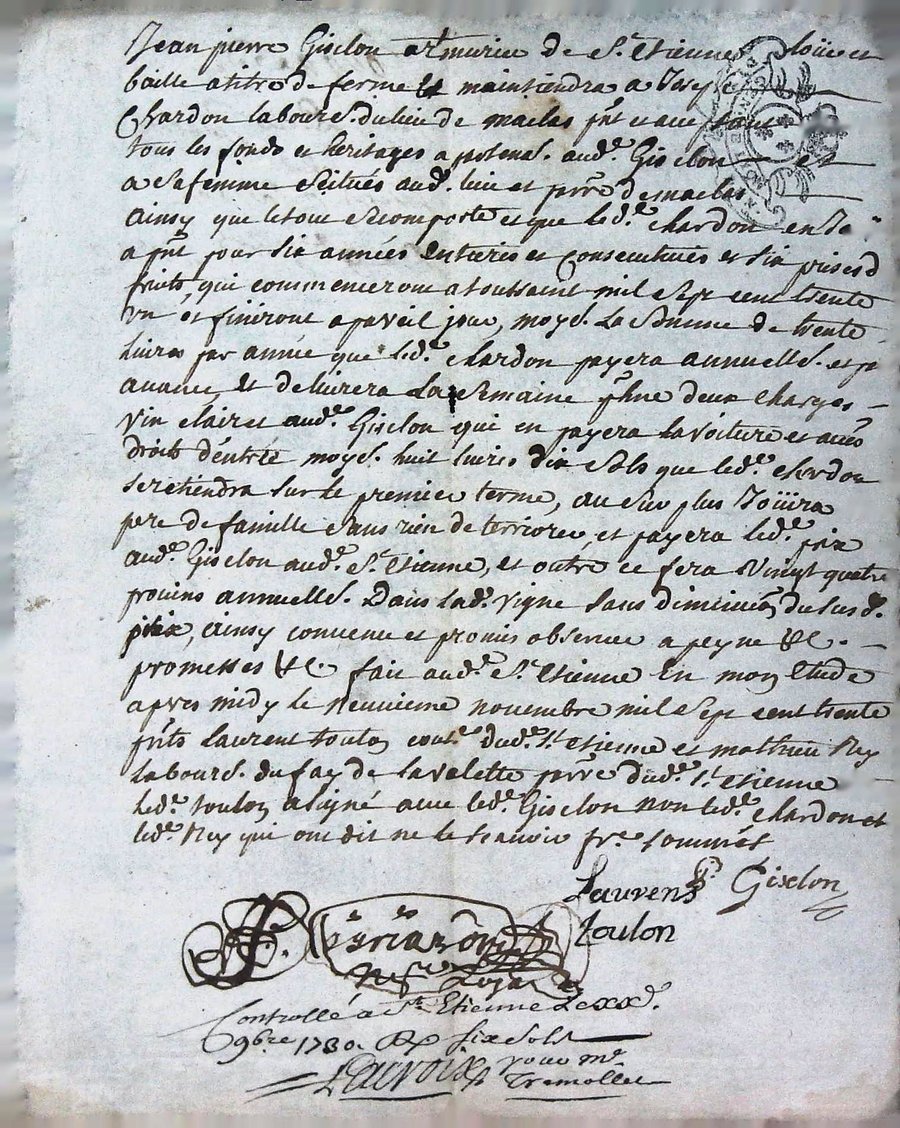 Jean pierre Giselon armurier de St. Etienne loüe et
baille a titre de ferme et maintiendra a
Chardon labours. du lieu de maclas pnt et acc.
tous les fonds et heritages apartenas. aud. Giselon et
a sa femme scitués aud. lieu et prre de maclas
ainsy que le tout se comporte et que led. chardon en
a pnt pour six années entieres et consecutives et six prises d
fruits, qui commenceront a toussaint mil sept cent trente
un et finiront a pareil jour, moyt. La somme de trente
livres par année que led. chardon payera annuellt. et p
avance, et delivrera la semaine phne deux charges
vin clairet aud. Giselon qui en payera la voiture et
droits d'entrée moyt. huit livres dix sols que led. chardon
se retiendra sur le premier terme, au sur plus Joüira
pere de famille sans rien deterriorer, et payera led. prix
aud. Giselon aud. St. Etienne, et outre ce fera vingt quatre
provins annuellt. Dans lad. vigne sans diminuon du susd.
prix, ainsy convenu et promis observer a peyne &c.
promesses &c. fait aud. St. Etienne En mon Etude
apres midy le neuvieme novembre mil sept cent trente
pnts Laurent toulon dud. St. etienne et mathieu Rey
labours. du fay de la valette prre dud. St. etienne
led. toulon a signé avec led. Giselon non led. chardon et
led. Rey qui ont dit ne le scavoir sommés
Laurens Giselon
toulon
Controllé a St. Etienne Le xx
9bre 1730. R six sols
Lacroix pour mr
Tremollet